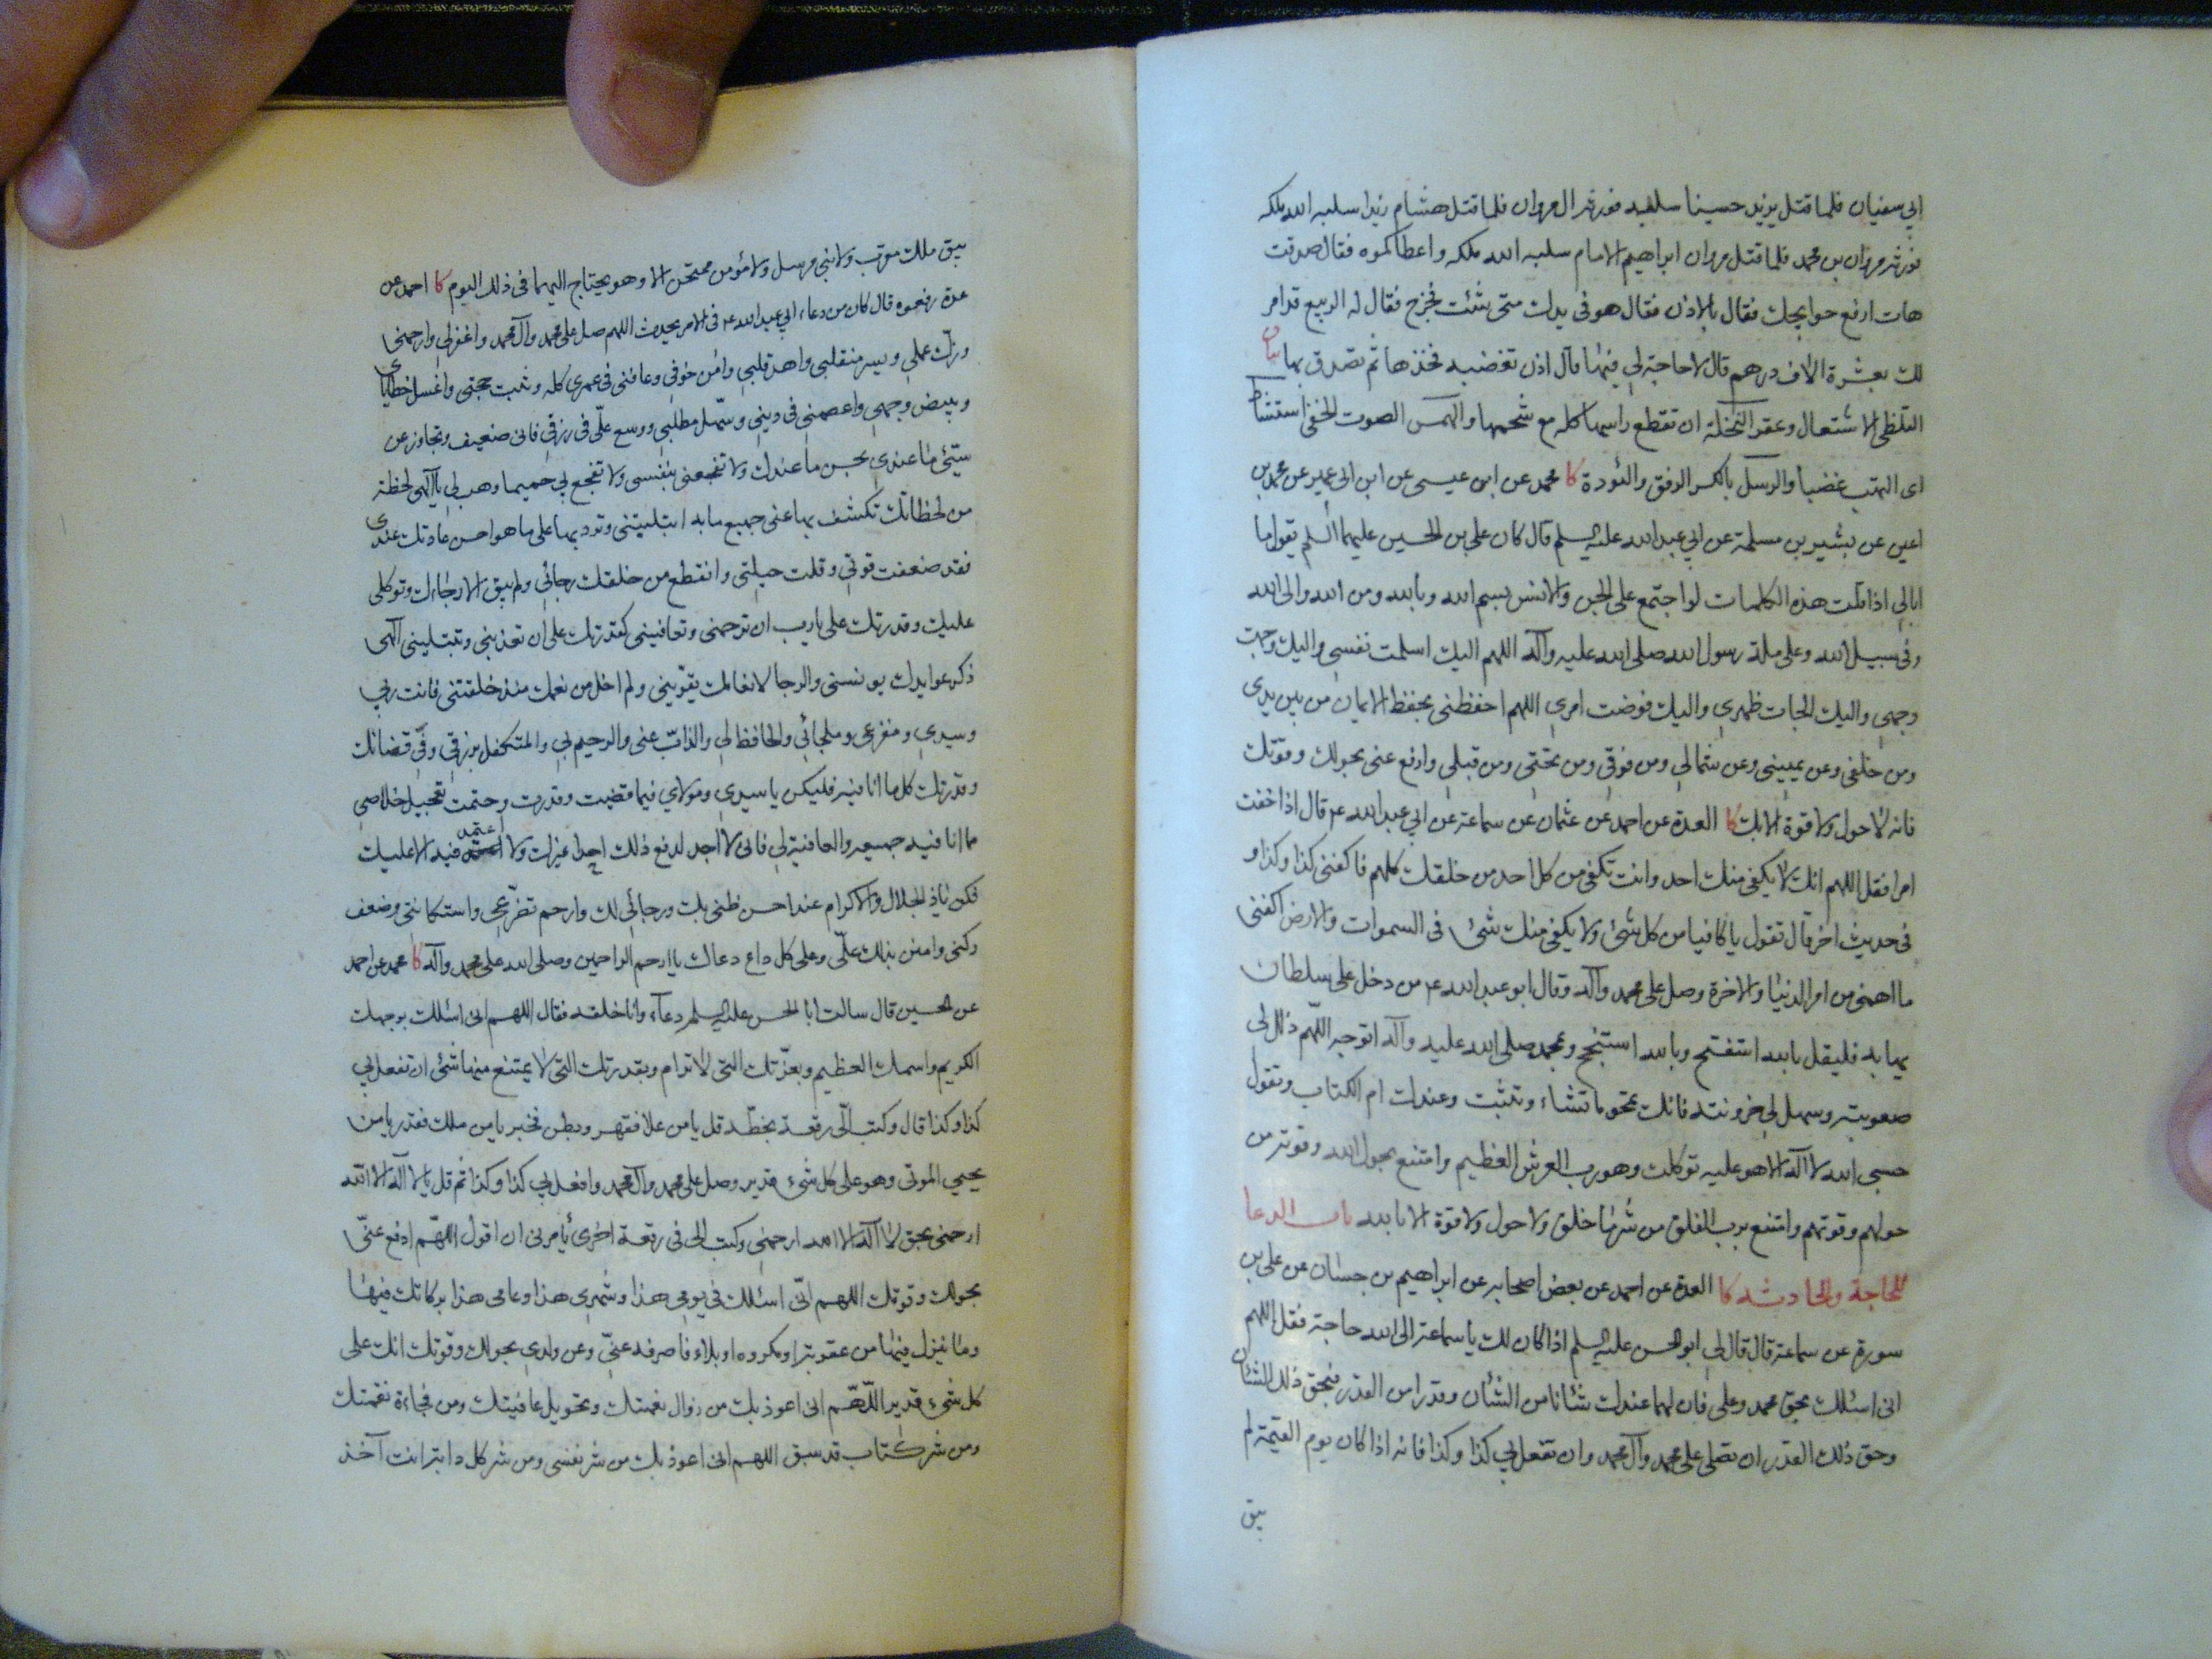 ابي سفيان فلما قتل يزيد حسينا سلبه فورثه ال مروان فلما قتل هشام زيدا سلبه الله ملكه
فورثه مروان بن محمد فلما قتل مروان ابراهيم الامام سلبه الله ملكه واعطاكموه فقال صدقت
هات ارفع حوايجك فقال بالاذن فقال هو في يدك متى شئت فخرج فقال له الربيع قد امر
لك بعشرة الاف درهم قال لا حاجة لي فيها قال اذن تغضبه فخذها ثم تصدق بها بيان
التلظي الاشتعال وعقر النخلة ان تقطع راسها كله مع شحمها والهمس الصوت الخفي استشاط
اى التهب غضبا والرسل بالكسر الرفق والتؤدة كا محمد عن ابن عيسى عن ابن ابي عمير عن محمد بن
اعين عن بشير بن مسلمة عن ابي عبد الله عليه السلم قال كان علي بن الحسين عليهما السلم يقول ما
ابالي اذا قلت هذه الكلمات لو اجتمع علي الجن والانس بسم الله وبالله ومن الله والى الله
وفي سبيل الله وعلى ملة رسول الله صلى الله عليه وآله اللهم اليك اسلمت نفسي واليك وجهت
وجهي واليك الجات ظهري واليك فوضت امري اللهم احفظني بحفظ الايمان من بين يدي
ومن خلفي وعن يميني وعن شمالي ومن فوقي ومن تحتي ومن قبلي وادفع عني بحولك وقوتك
فانه لا حول ولا قوة الا بك كا العدة عن احمد عن عثمان عن سماعة عن ابي عبد الله ع قال اذا خفت
امرا فقل اللهم انك لا يكفي منك احد وانت تكفي من كل احد من خلقك كلهم فاكفني كذا وكذا و
في حديث اخر قال تقول يا كافيا من كل شئ ولا يكفي منك شئ في السموات والارض اكفني
ما اهمني من امر الدنيا والاخرة وصل على محمد وآله وقال ابو عبد الله ع من دخل على سلطان
يهابه فليقل بالله استفتح وبالله استنجح وبمحمد صلى الله عليه وآله اتوجه اللهم ذلل لي
صعوبته وسهل لي حزونته فانك تمحو ما تشاء وتثبت وعندك ام الكتاب وتقول
حسبي الله لا اله الا هو عليه توكلت وهو رب العرش العظيم وامتنع بحول الله وقوته من
حولهم وقوتهم وامتنع برب الفلق من شر ما خلق ولا حول ولا قوة الا بالله باب الدعا
للحاجة والحادثة كا العدة عن احمد عن بعض اصحابه عن ابراهيم بن حنان عن علي بن
سورة عن سماعة قال قال لي ابو الحسن عليه السلم اذا كان لك يا سماعة الى الله حاجة فقل اللهم
اني اسئلك بحق محمد وعلي فان لهما عندك شئانا من الشئان وقدرا من القدر فبحق ذلك الشئان
وحق ذلك القدر ان تصلي على محمد وآل محمد وان تفعل بي كذا وكذا فانه اذا كان يوم القيمة لم
يبق
يبق ملك مقرب ولا نبي مرسل ولا مؤمن ممتحن الا وهو يحتاج اليهما في ذلك اليوم كا احمد عن
عدة رفعوه قال كان من دعاء ابي عبد الله ع في الامر يحدث اللهم صل على محمد وآل محمد واغفر لي وارحمني
وزك عملي ويسر منقلبي واهد قلبي وامن خوفي وعافني في عمري كله وثبت حجتي واغسل خطاياى
وبيض وجهي واعصمني في ديني وسهل مطلبي ووسع علي في رزقي فاني ضعيف وتجاوز عن
سيئ ما عندي بحسن ما عندك ولا تفجعني بنفسي ولا تفجع بي حميما وهب لي يا الهي لحظة
من لحظاتك تكشف بها عني جميع ما به ابتليتني وترد بها علي ما هو احسن عادتك عندي
فقد ضعفت قوتي وقلت حيلتي وانقطع من خلقك رجائي ولم يبق الا رجاءك وتوكلي
عليك وقدرتك علي يا رب ان ترحمني وتعافيني كقدرتك علي ان تعذبني وتبتليني الهي
ذكر عوايدك يونسني والرجا لانعامك يقويني ولم اخل من نعمك منذ خلقتني فانت ربي
وسيدي ومفزعي وملجائي والحافظ لي والذاب عني والرحيم بي والمتكفل برزقي وفي قضائك
وقدرتك كل ما انا فيه فليكن يا سيدي ومولاي فيما قضيت وقدرت وحتمت تعجيل خلاصي
مما انا فيه جميعه والعافية لي فاني لا اجد لدفع ذلك احدا غيرك ولا اعتمد فيه الا عليك
فكن يا ذا الجلال والاكرام عند احسن ظني بك ورجائي لك وارحم تضرعي واستكانتي وضعف
ركني وامنن بذلك علي وعلى كل داع دعاك يا ارحم الراحمين وصلى الله على محمد وآله كا محمد عن احمد
عن الحسين قال سالت ابا الحسن عليه السلم دعاء وانا خلفه فقال اللهم اني اسئلك بوجهك
الكريم واسمك العظيم وبعزتك التي لا ترام وبقدرتك التي لا يمتنع منها شئ ان تفعل بي
كذا وكذا قال وكتب الي رقعة بخطه قل يا من علا فقهر وبطن فخبر يا من ملك فقدر يا من
يحيي الموتى وهو على كل شئ قدير وصل على محمد وآل محمد وافعل بي كذا وكذا ثم قل يا لا اله الا الله
ارحمني بحق لا اله الا الله ارحمني وكتب الي في رقعة اخرى يأمرني ان اقول اللهم ادفع عني
بحولك وقوتك اللهم اني اسئلك في يومي هذا وشهري هذا وعامي هذا بركاتك فيها
وما ينزل فيها من عقوبة او مكروه او بلاء فاصرفه عني وعن ولدي بحولك وقوتك انك على
كل شئ قدير اللهم اني اعوذ بك من زوال نعمتك وتحويل عافيتك ومن فجاءة نقمتك
ومن شر كتاب قد سبق اللهم اني اعوذ بك من شر نفسي ومن شر كل دابة انت آخذ